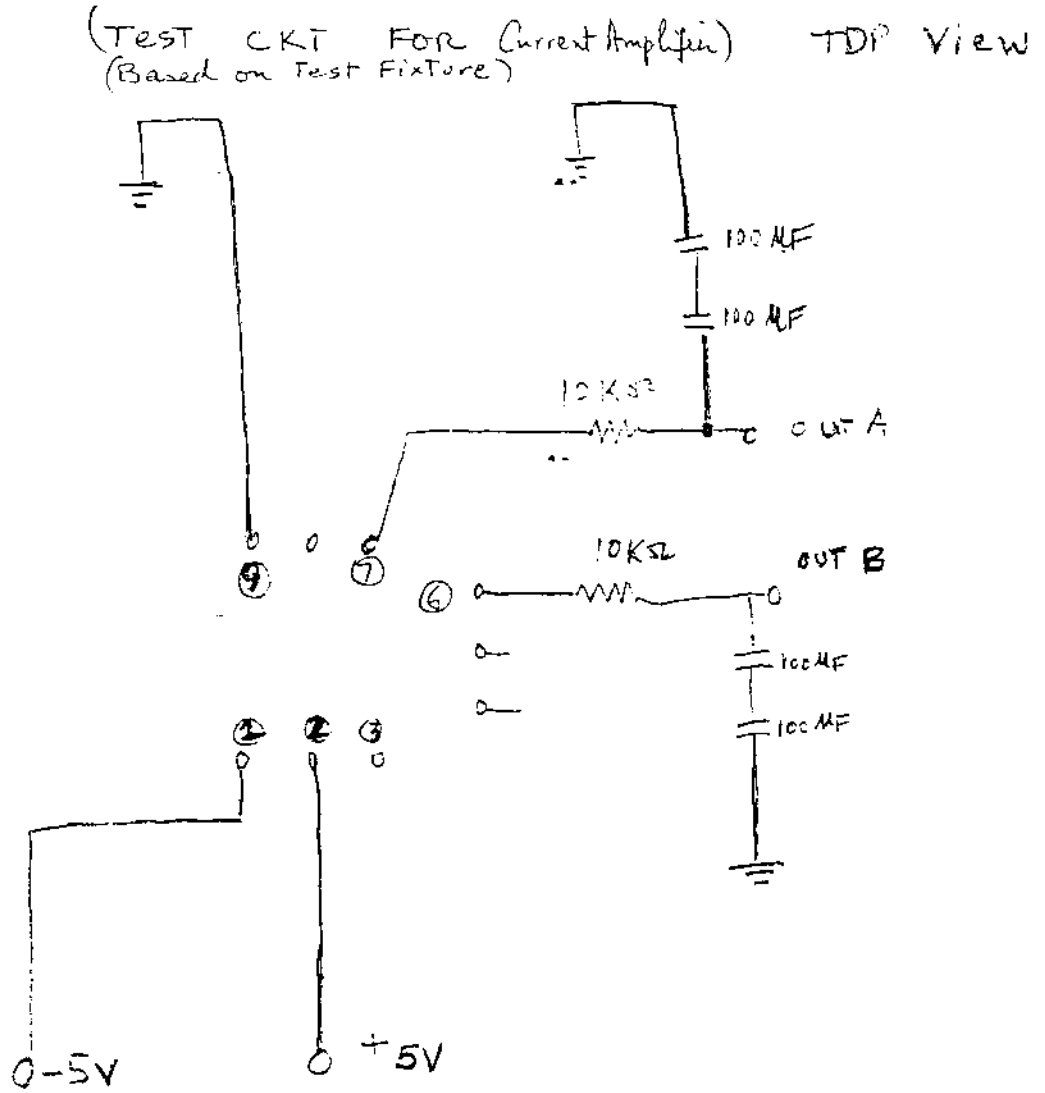 (TEST CKT FOR Current Amplifier) TOP View
(Based on Test Fixture)
100 µF
100 µF
10 KΩ
OUT A
9
7
10KΩ
OUT B
6
100 µF
1 2 3
100 µF
-5V
+5V